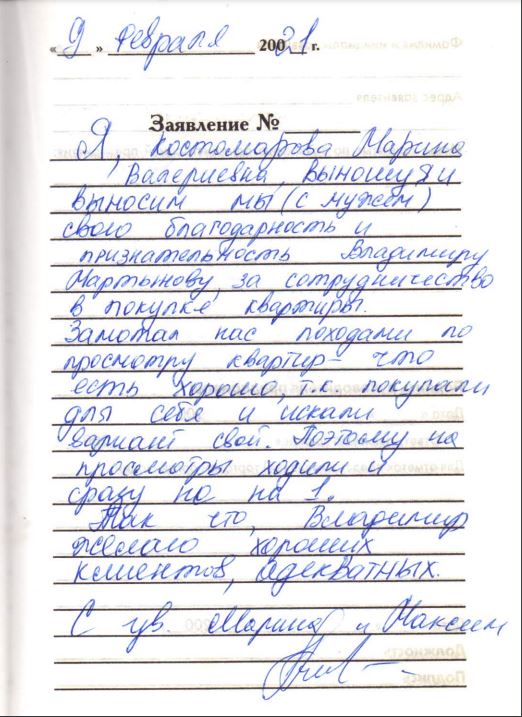 « 9 » Февраля 20021 г.
Заявление №
Я, Костомарова Марина
Валериевна, выношу я и
выносим мы (с мужем)
свою благодарность и
признательность Владимиру
Мартынову, за сотрудничество
в покупке квартиры.
Замотал нас походами по
просмотру квартир – что
есть хорошо, т.к. покупали
для себя и искали
вариант свой. Поэтому на
просмотры ходили и
сразу по на 1.
Так что, Владимир
желаю хороших
клиентов, адекватных.
С ув. Марина и Максим